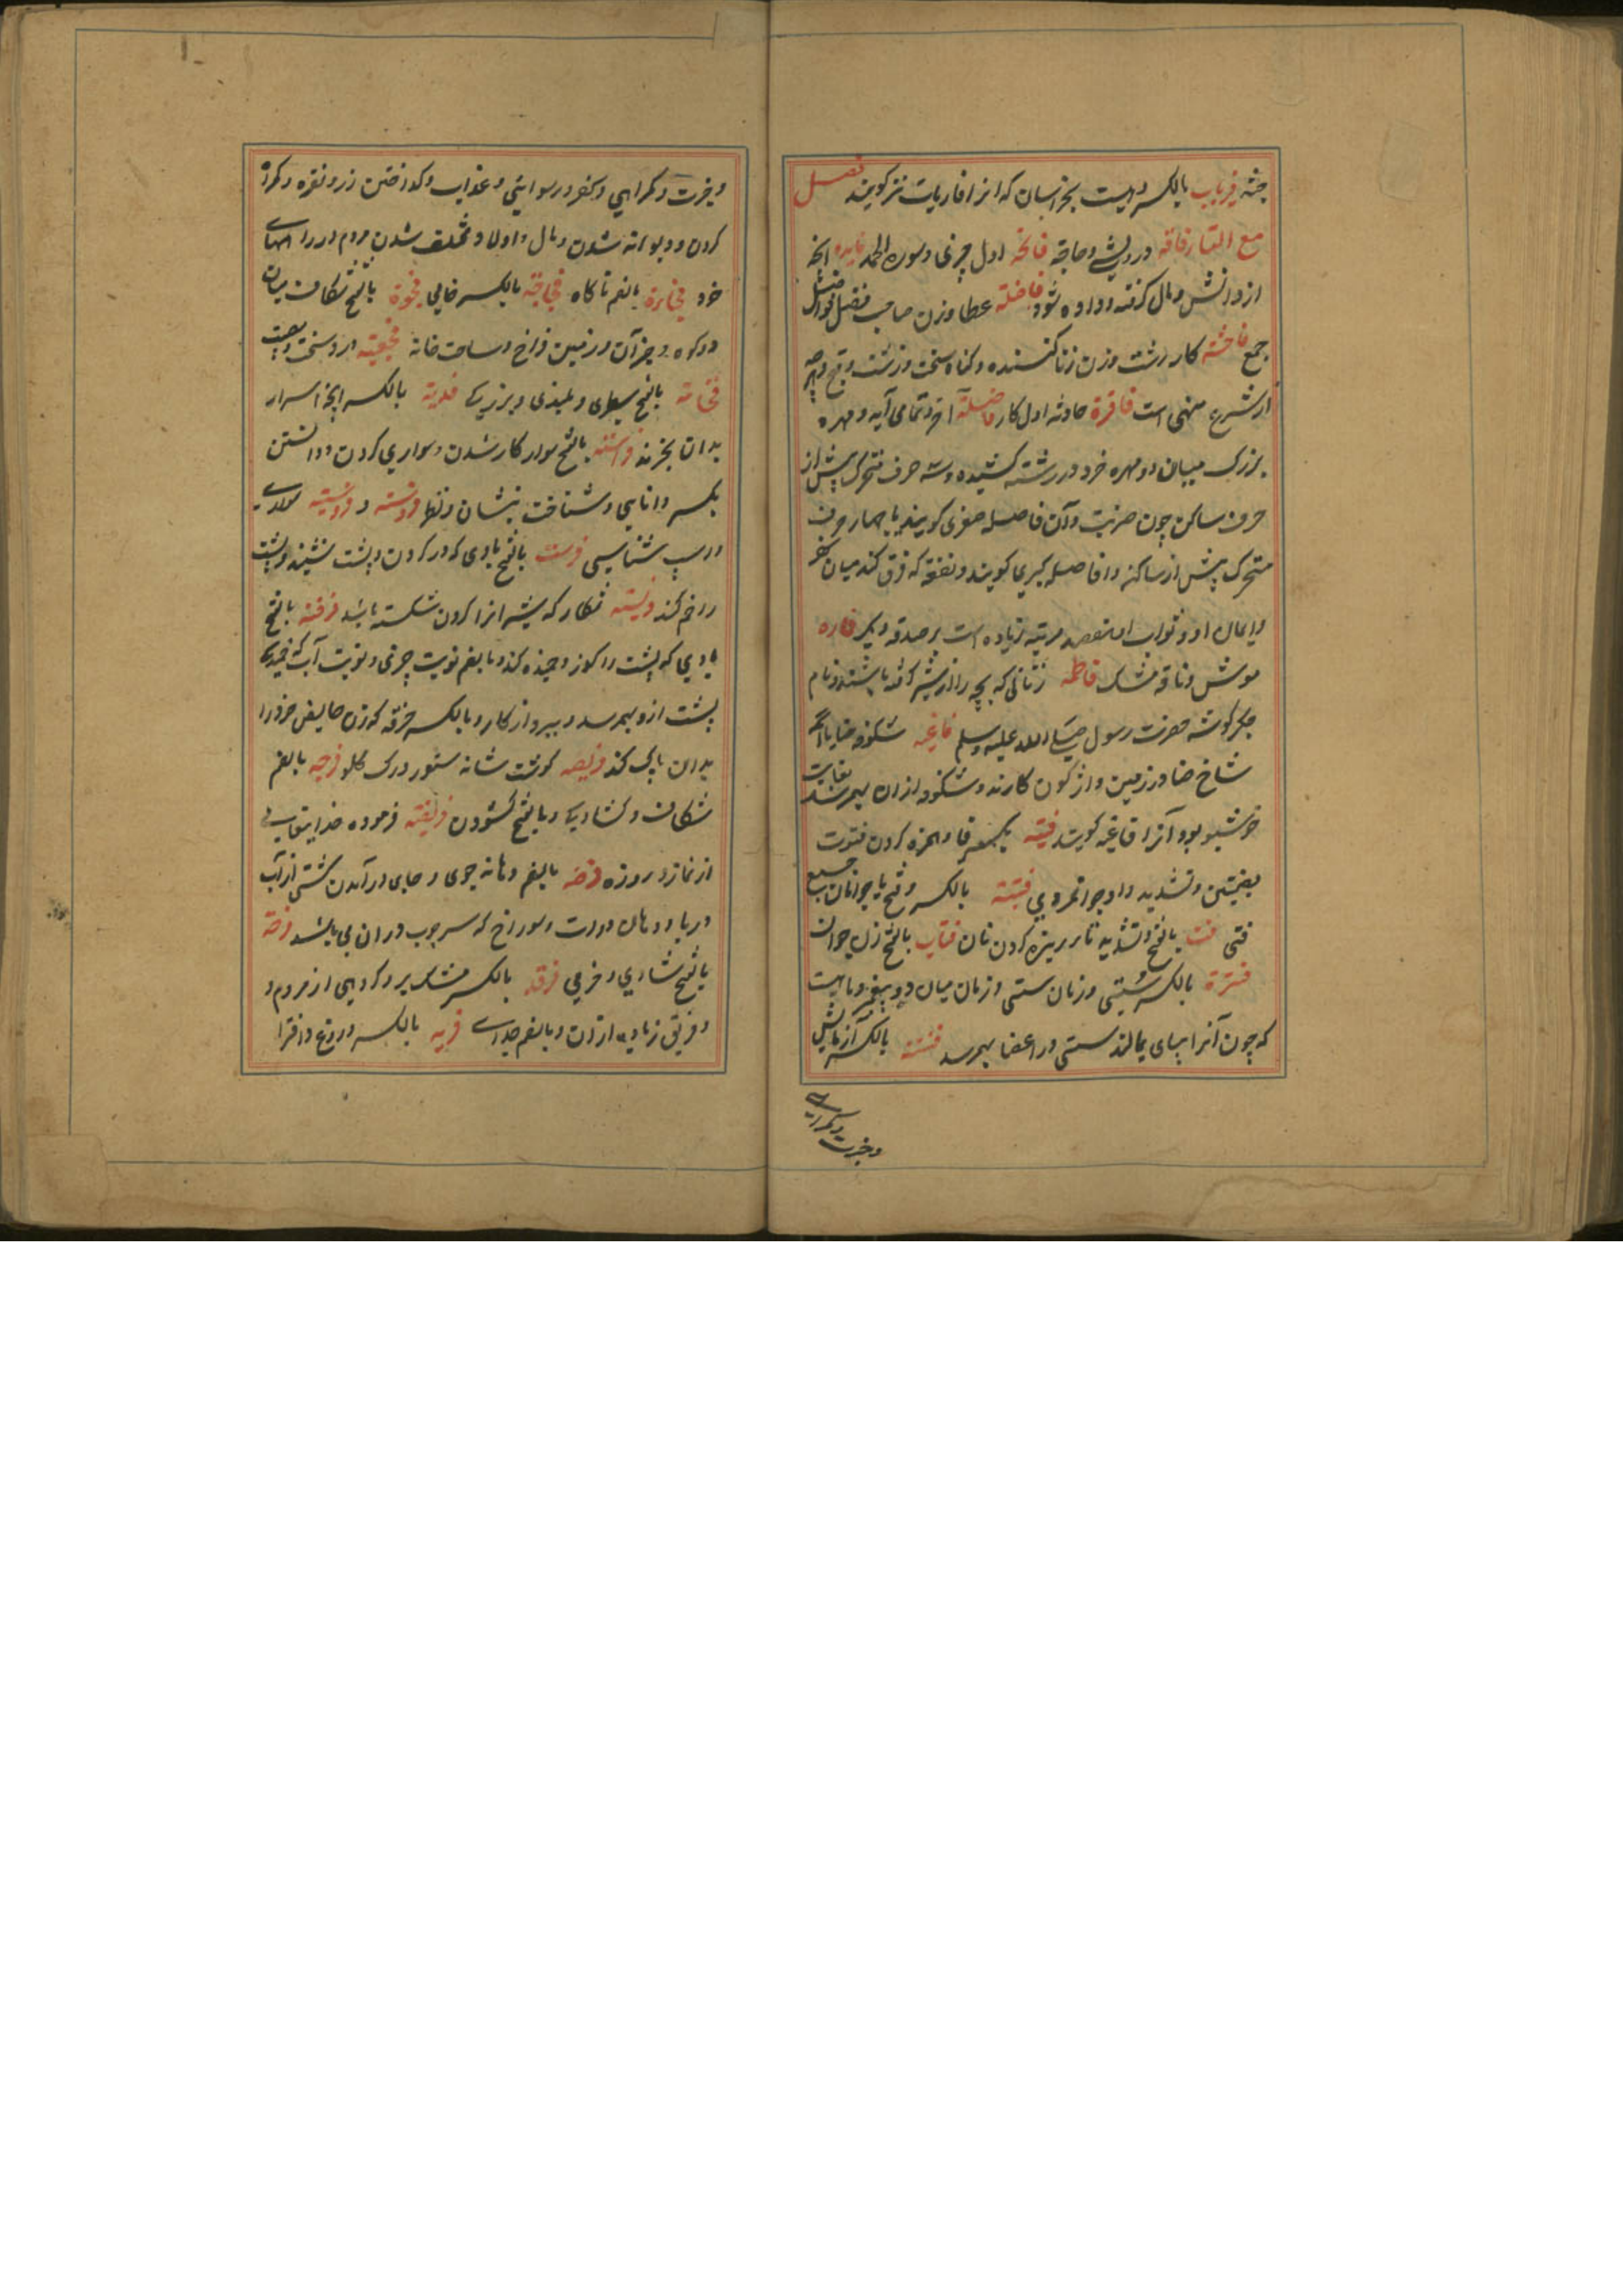 جثه فریاب بالکسر دهیست بخراسان که انرا فاریاب نیز کویند فصل
مع التاء فاقه درویشی و حاجة فاتحه اول چیزی و سوره الحمد فایده انچه
از دانش و مال کرفته و داده شود فاضلة عطا و زن صاحب فضل فواضل
جمع فاحشه کار زشت و زن زنا کننده و کناه سخت و زشت و قبح و هرچه
از شرع منهی است فاقرة حادثه اول کار فاصلة اخر و تمامی آیه و مهره
بزرک میان دو مهره خرد در رشته کشیده و سه حرف متحرک پیش از
حرف ساکن چون ضربت و آن فاصله صغری کویند یا چهار حرف
متحرک پیش از ساکن و انرا فاصله کبری کویند و نفقه که فرق کند میان کفر
و ایمان او و ثواب او هفتصد مرتبه زیاده است بر صدقه دیکر فاره
موش و نافه مشک فاطمه زنانی که بچه را از شیر کرفته باشند و نام
جکر کوشه حضرت رسول صلی الله علیه وسلم فاغیه شکوفه حنا یا انکه
شاخ حنا در زمین واژکون کارند و شکوفه ازان بهم رسد بغایت
خوشبو بود آنرا فاغیه کویند فیئه بکسر فا و همزه کردن فتوت
بضمتین و تشدید واو جوانمردی فتیة بالکسر و فتح یا جوانان جمع
فتی فت بالفتح و تشدید تا ریزه کردن نان فتاة بالفتح زن جوان
فترة بالکسر سستی و زمان سستی و زمان میان دو پیغمبر و ماهیست
که چون آنرا بپای بمالند سستی در اعضا بهم رسد فتنه بالکسر آزمایش
و خبرت و کمراهی
و خبرت و کمراهی و کفر و رسوایی و عذاب و کداختن زر و نقره و کمراه
کردن و دیوانه شدن و مال و اولاد و مختلف شدن مردم در راههای
خود فجاءة بالضم ناکاه فجاجة بالکسر خامی فجوة بالفتح شکاف میان
دو کوه و جز آن و زمین فراخ و ساحت خانه فجیعه درد سخت و مصیبت
فخامة بالفتح سطبری و بلندی و بزرکی فدیة بالکسر انچه اسیر را
بدان بخرند فراسة بالفتح سوار کار شدن و سواری کردن و دانستن
بکسر دانایی و شناخت بنشان و نظر فروسة و فروسیة سواری
و اسپ شناسی فرسة بالفتح بادی که در کردن و پشت نشیند و پشت
را خم کند فریسه شکار که شیر انرا کردن شکسته باشد فرصه بالفتح
بادی که پشت را کوز و خمیده کند و بالضم نوبت چیزی و نوبت آب که خمیدکی
پشت ازو بهم رسد و بیرون از کار و بالکسر خرقه که زن حایض خود را
بدان پاک کند فریصه کوشت شانه ستور و رک کلو فرجه بالضم
شکاف و کشادکی و بالفتح کشودن فریضه فرموده خدایتعالی
از نماز و روزه فرضه بالضم دهانه جوی و جای در آمدن کشتی از آب
دریا و دهان دوات و سوراخ که سر چوب دران می باشد فرحة
بالفتح شادی و خرمی فرقة بالکسر مشک پر و کروهی از مردم و
و فریق زیاده ازان و بالضم جدایی فریه بالکسر دروغ و افترا